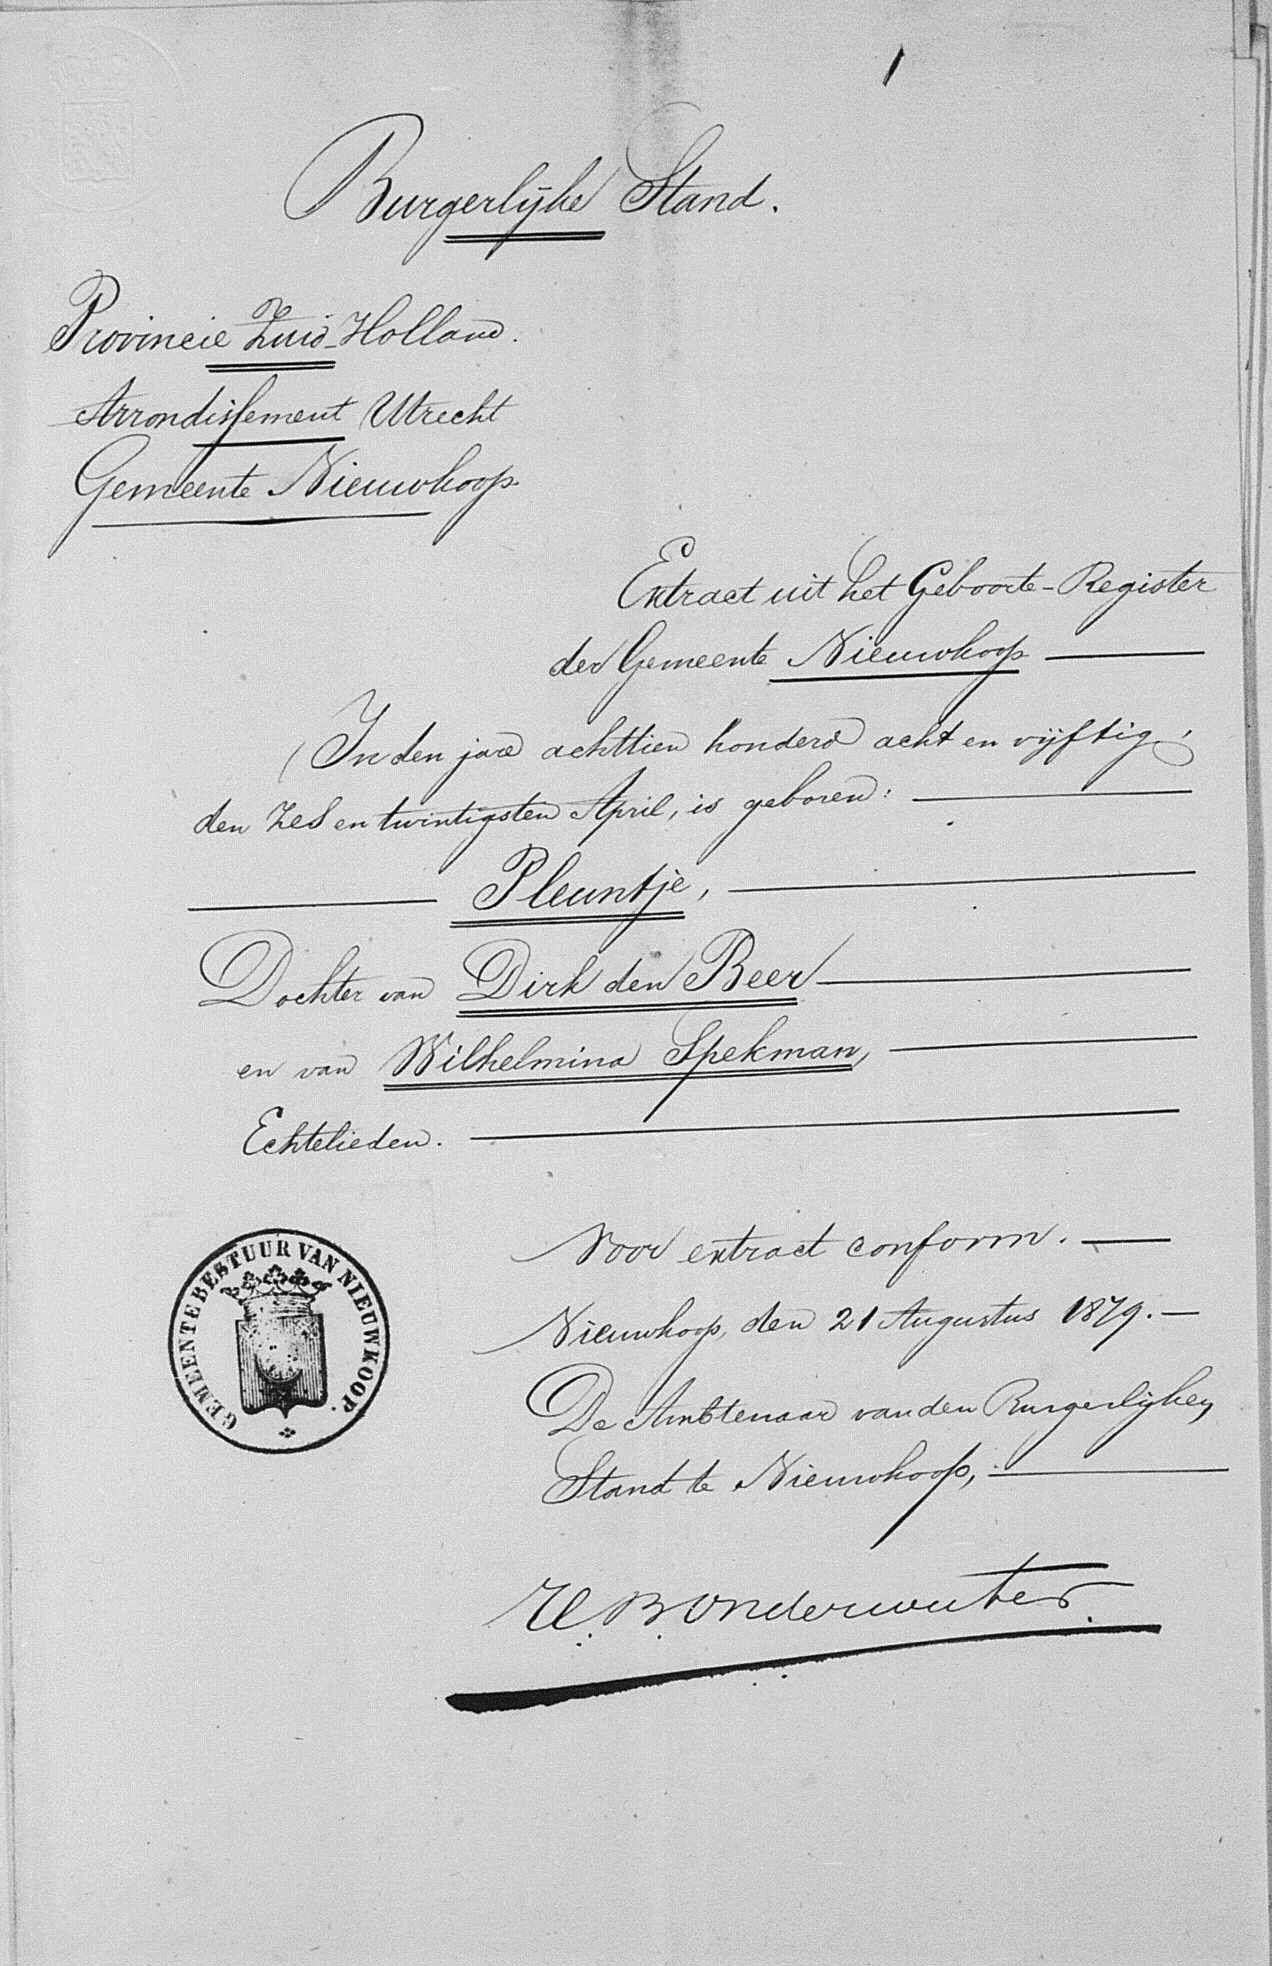 1
Burgerlijke Stand.
Provincie Zuid-Holland.
Arrondissement Utrecht
Gemeente Nieuwkoop
Extract uit het Geboorte-Register
der Gemeente Nieuwkoop
In den jare achttien honderd acht en vijftig,
den zes en twintigsten April, is geboren:
Pleuntje,
Dochter van Dirk den Beer
en van Wilhelmina Spekman,
Echtelieden.
Voor extract conform.
Nieuwkoop, den 21 Augustus 1879.
De Ambtenaar van den Burgerlijken
Stand te Nieuwkoop,
GEMEENTEBESTUUR VAN NIEUWKOOP.